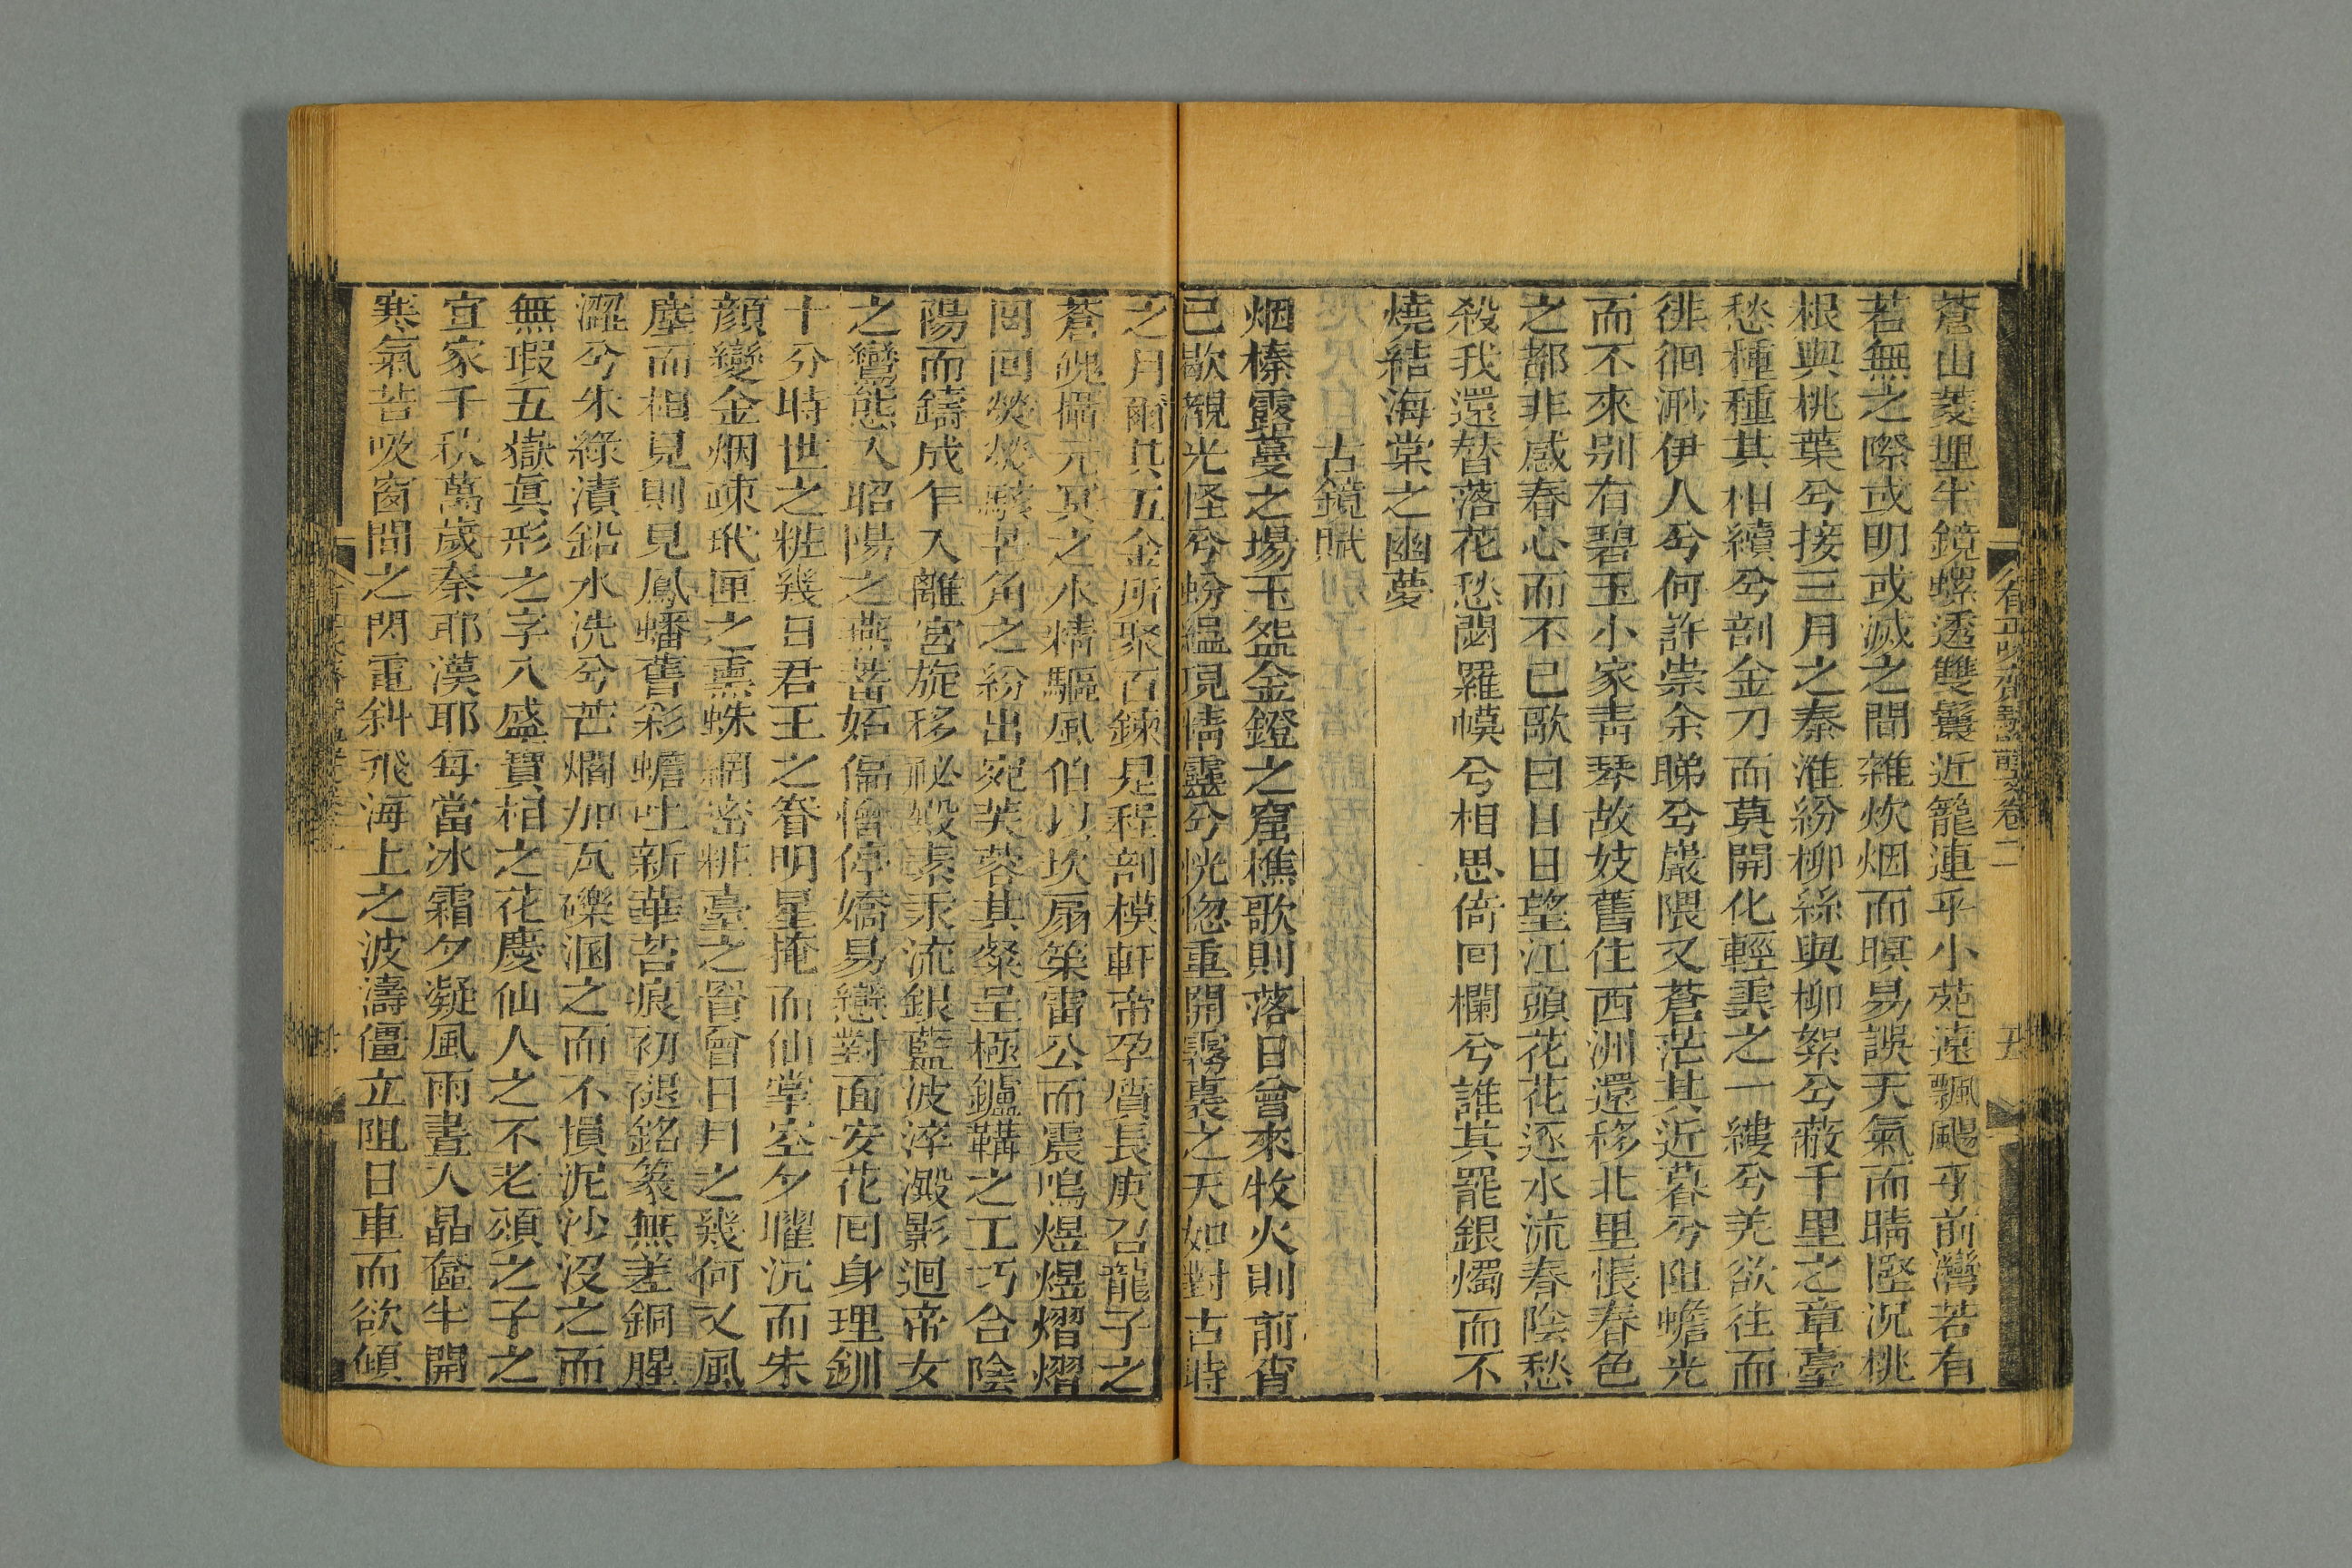 蒼山菱埋半鏡螺透雙鬟近籠連乎小苑遠飄颺乎前灣若有
若無之際或明或滅之間雜炊烟而暝易誤天氣而晴慳況桃
根與桃葉兮接三月之秦淮紛柳絲與柳絮兮蔽千里之章臺
愁種種其相續兮剖金刀而莫開化輕雲之一縷兮羌欲往而
徘徊渺伊人兮何許崇余睇兮巖隈又蒼茫其近暮兮阻蟾光
而不來别有碧玉小家青琴故妓舊住西洲還移北里悵春色
之都非感春心而不已歌曰日日望江頭花花逐水流春陰愁
殺我還替落花愁閟羅幙兮相思倚回欄兮誰其罷銀燭而不
燒結海棠之幽夢
古鏡賦
烟榛露蔓之場玉盌金鐙之窟樵歌則落日曾來牧火則前宵
已歇覩光怪兮蚡緼現情靈兮恍惚重開霧裏之天如對古時
之月爾其五金所聚百鍊是程剖模軒帝孕質長庚召龍子之
蒼魂攝元冥之水精驅風伯以坎扇策雷公而震鳴煜煜熠熠
囘回熒熒駭芒角之紛出宛芙蓉其粲呈極鑪鞲之工巧合陰
陽而鑄成乍入離宮旋移祕殿素汞流銀藍波滓澱影迴帝女
之鸞態入昭陽之燕蓄妬偏憎倖嬌易戀對面安花囘身理釧
十分時世之粧幾日君王之眷明星掩而仙掌空夕曜沉而朱
顔變金烟疎玳匣之熏蛛網密粧臺之罥曾日月之幾何又風
塵而相見則見鳳蟠舊彩蟾吐新華苔痕初褪銘篆無差銅腥
澀兮朱綠漬鉛水洗兮芒爓加瓦礫溷之而不損泥沙沒之而
無瑕五嶽眞形之字八盛寶相之花慶仙人之不老須之子之
宜家千秋萬歲秦耶漢耶每當冰霜夕凝風雨晝人晶奩半開
寒氣苦吸窗間之閃電斜飛海上之波濤僵立阻日車而欲傾
有正味齋駢體文卷二
五